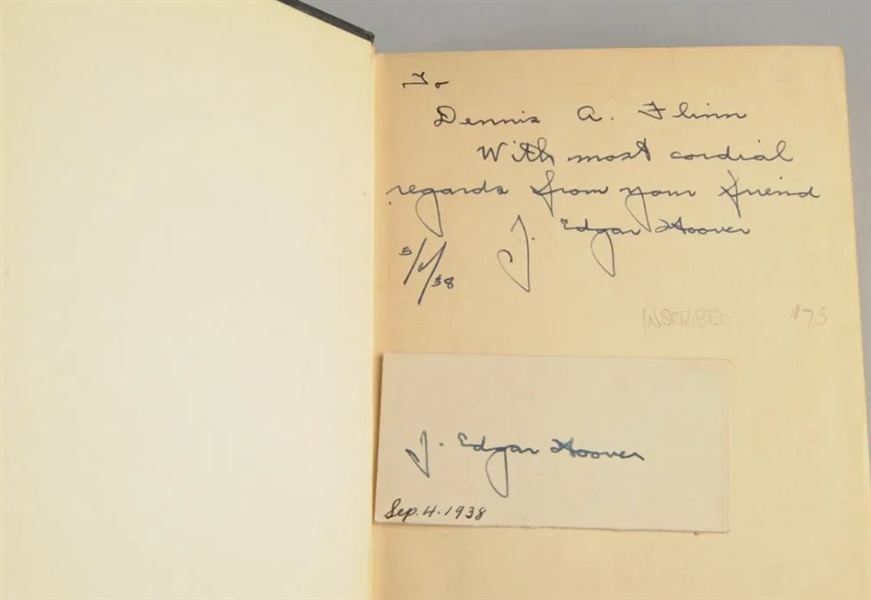 To
Dennis A. Flinn
With most cordial
regards from your friend
J. Edgar Hoover
5/1/38
INSCRIBED $75
J. Edgar Hoover
Sep. 4. 1938